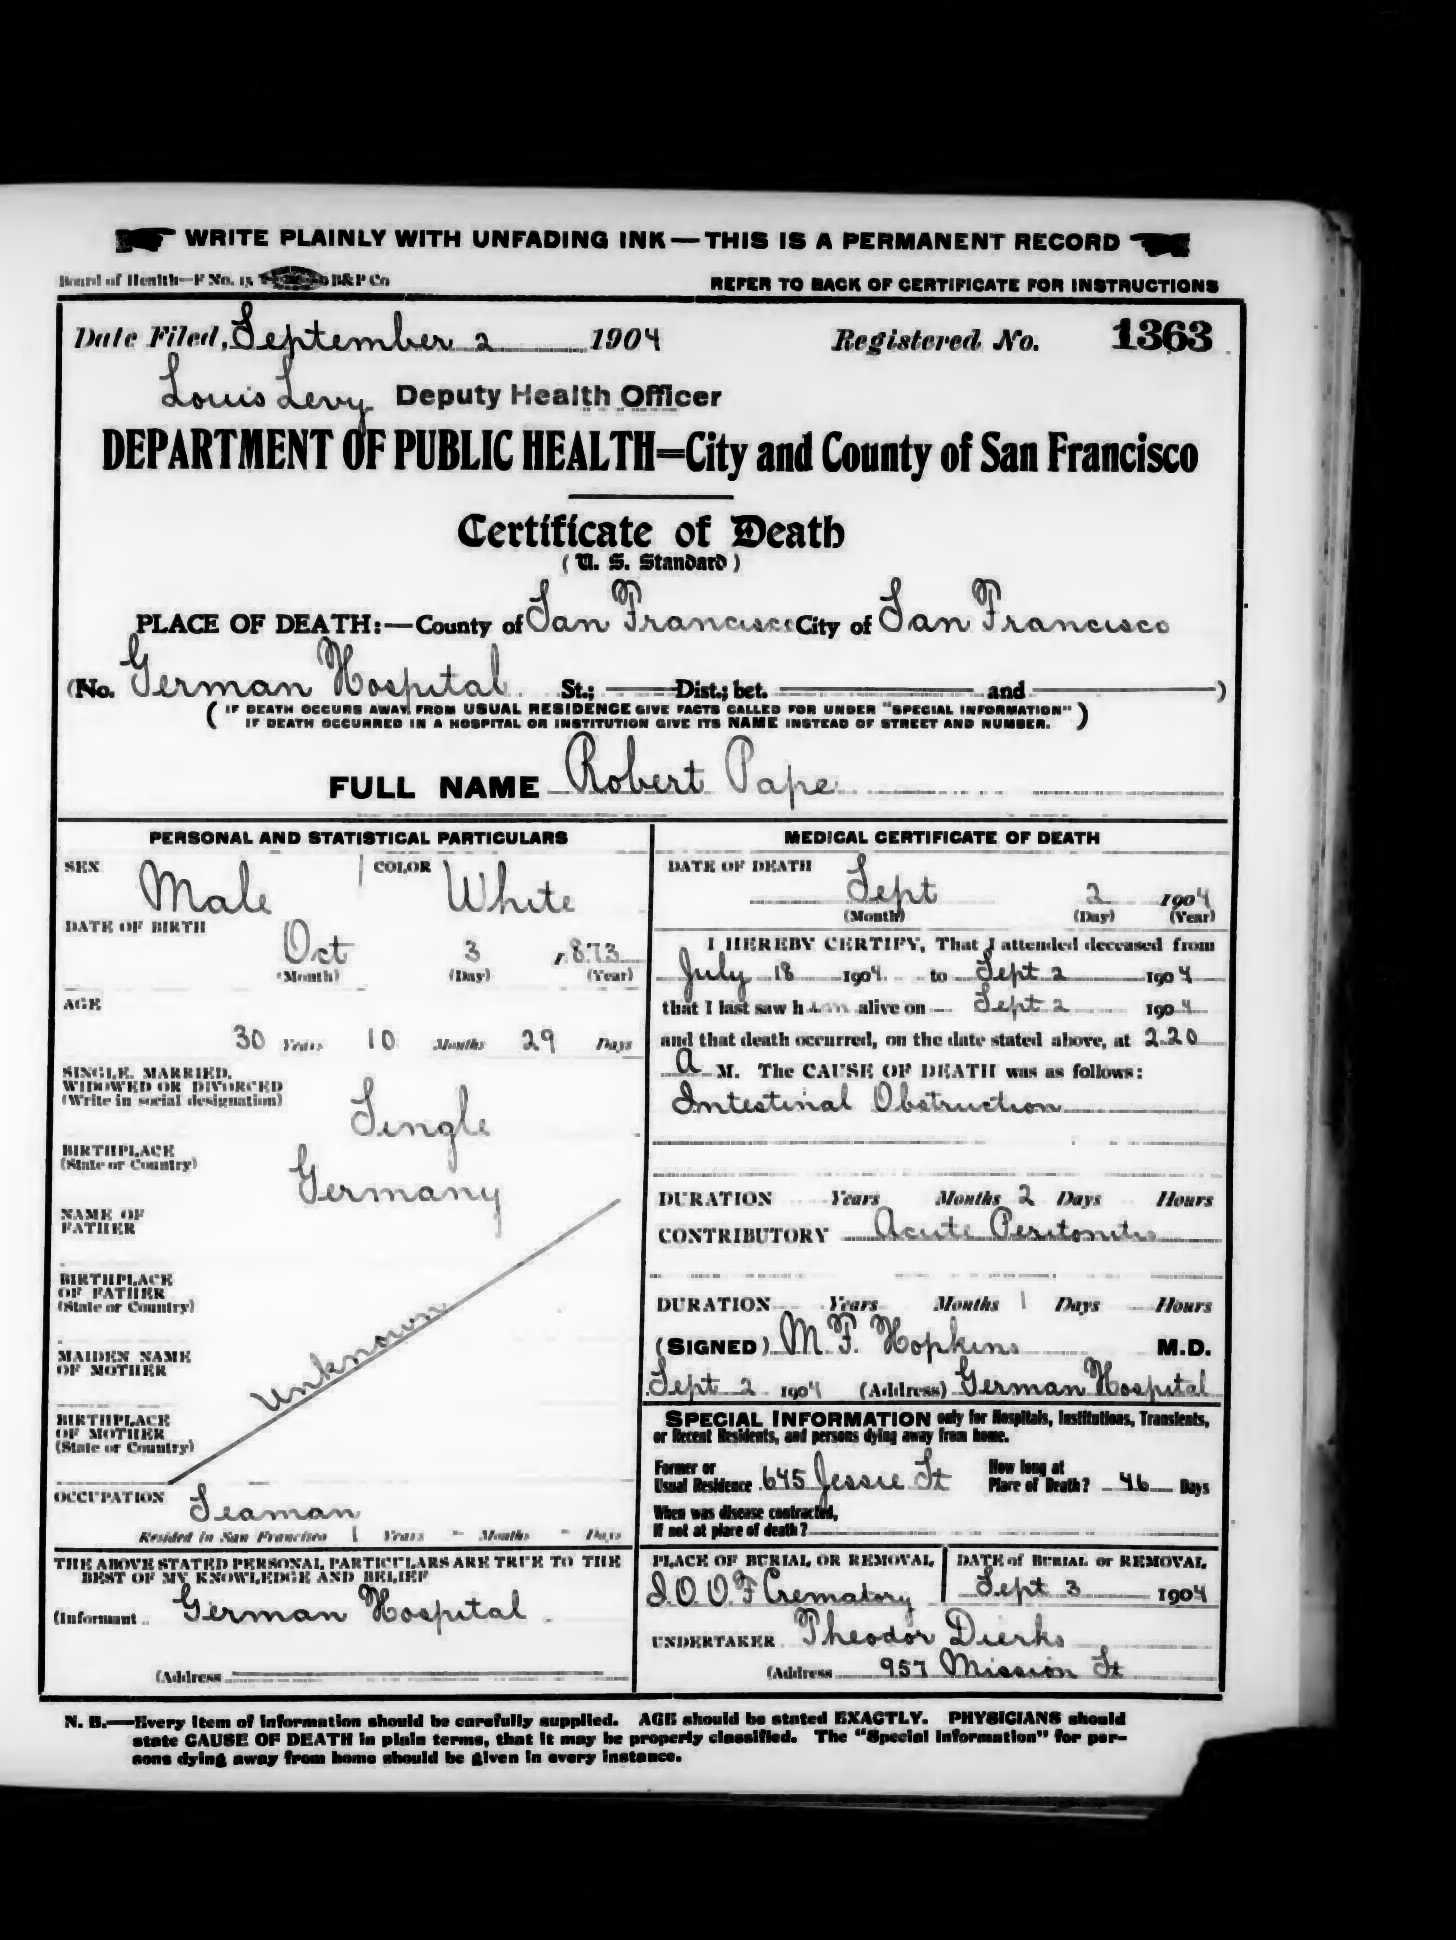 WRITE PLAINLY WITH UNFADING INK—THIS IS A PERMANENT RECORD
Board of Health—F No. 15 B&P Co REFER TO BACK OF CERTIFICATE FOR INSTRUCTIONS
Date Filed, September 2 1904 Registered No. 1363
Louis Levy Deputy Health Officer
DEPARTMENT OF PUBLIC HEALTH=City and County of San Francisco
Certificate of Death
(U. S. Standard)
PLACE OF DEATH:—County of San Francisco City of San Francisco
(No. German Hospital St.; Dist.; bet. and )
(IF DEATH OCCURS AWAY FROM USUAL RESIDENCE GIVE FACTS CALLED FOR UNDER "SPECIAL INFORMATION"
IF DEATH OCCURRED IN A HOSPITAL OR INSTITUTION GIVE ITS NAME INSTEAD OF STREET AND NUMBER.)
FULL NAME Robert Pape
PERSONAL AND STATISTICAL PARTICULARS
SEX Male COLOR White
DATE OF BIRTH
Oct 3 1873
(Month) (Day) (Year)
AGE
30 Years 10 Months 29 Days
SINGLE, MARRIED,
WIDOWED OR DIVORCED
(Write in social designation)
Single
BIRTHPLACE
(State or Country)
Germany
NAME OF
FATHER
BIRTHPLACE
OF FATHER
(State or Country)
MAIDEN NAME
OF MOTHER
unknown
BIRTHPLACE
OF MOTHER
(State or Country)
OCCUPATION Seaman
Resided in San Francisco 1 Years - Months - Days
THE ABOVE STATED PERSONAL PARTICULARS ARE TRUE TO THE
BEST OF MY KNOWLEDGE AND BELIEF
(Informant German Hospital
(Address
MEDICAL CERTIFICATE OF DEATH
DATE OF DEATH
Sept 2 1904
(Month) (Day) (Year)
I HEREBY CERTIFY, That I attended deceased from
July 18 1904 to Sept 2 1904
that I last saw him alive on Sept 2 1904
and that death occurred, on the date stated above, at 2.20
A M. The CAUSE OF DEATH was as follows:
Intestinal Obstruction
DURATION Years Months 2 Days Hours
CONTRIBUTORY Acute Peritonitis
DURATION Years Months 1 Days Hours
(SIGNED) M. F. Hopkins M.D.
Sept 2 1904 (Address) German Hospital
SPECIAL INFORMATION only for Hospitals, Institutions, Transients,
or Recent Residents, and persons dying away from home.
Former or
Usual Residence 645 Jessie St How long at
Place of Death? 46 Days
When was disease contracted,
If not at place of death?
PLACE OF BURIAL OR REMOVAL DATE of BURIAL or REMOVAL
I.O.O.F Crematory Sept 3 1904
UNDERTAKER Theodor Dierks
(Address 957 Mission St
N. B.—Every item of information should be carefully supplied. AGE should be stated EXACTLY. PHYSICIANS should
state CAUSE OF DEATH in plain terms, that it may be properly classified. The "Special Information" for per-
sons dying away from home should be given in every instance.